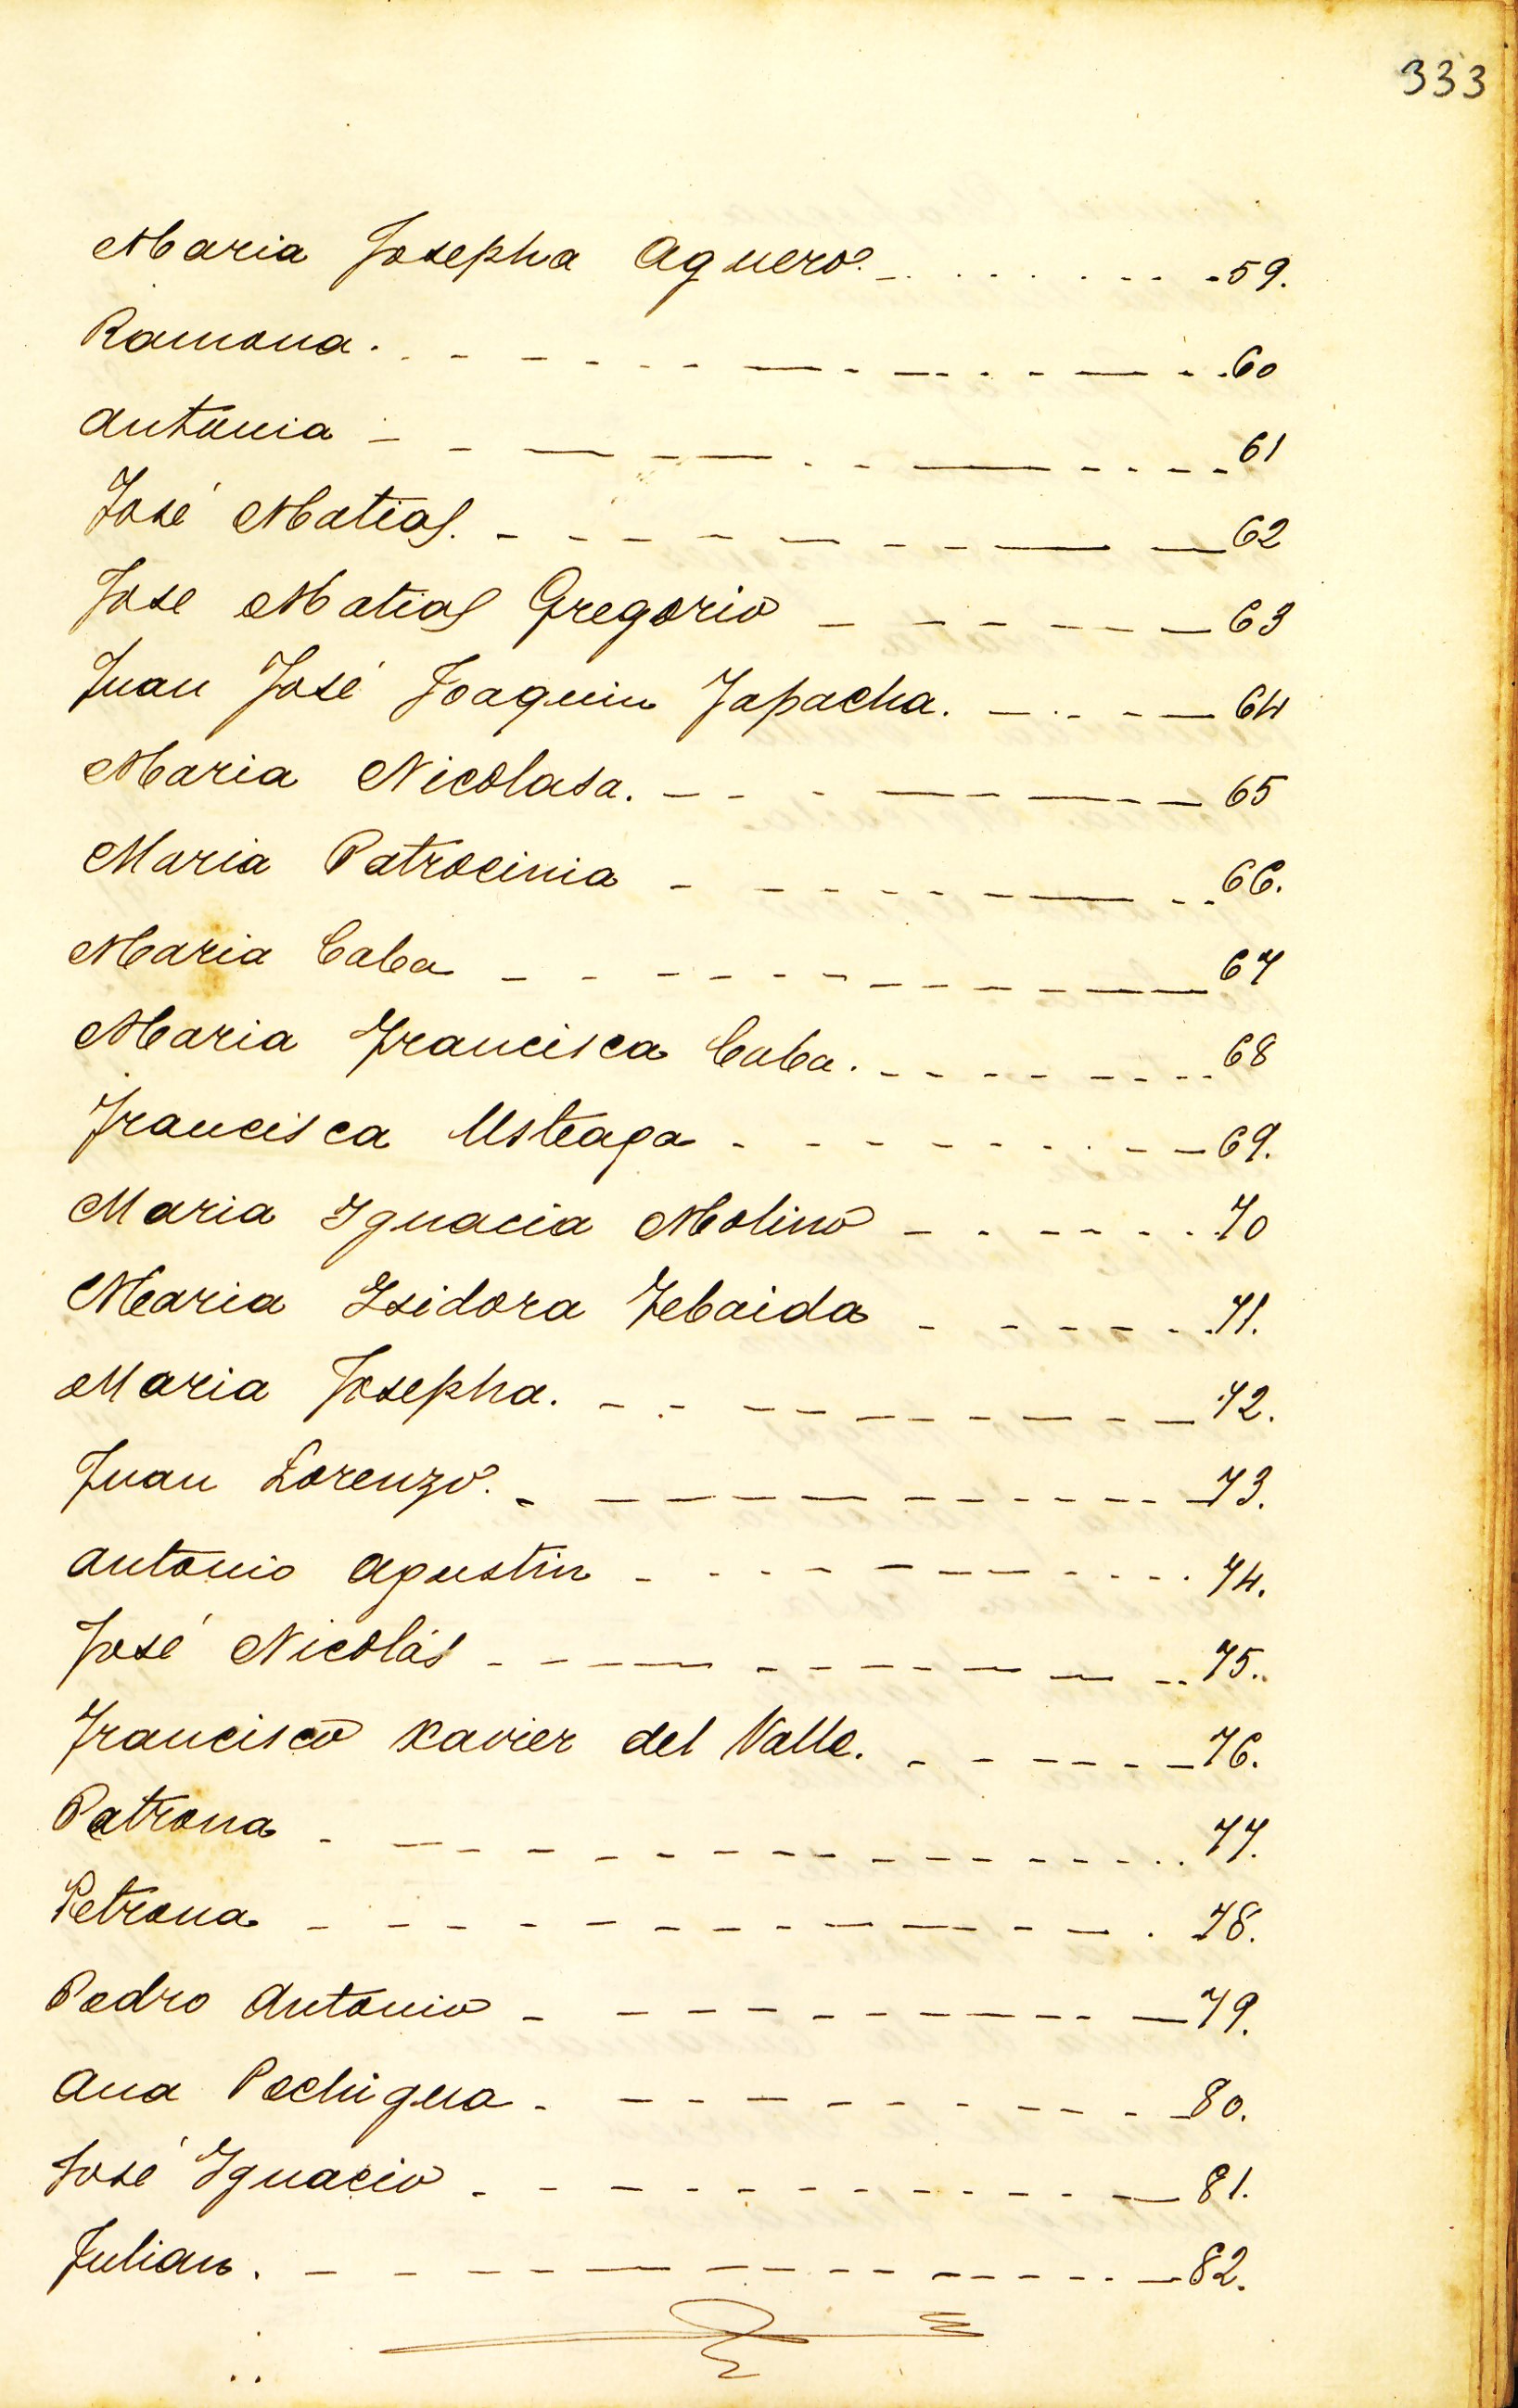 333
Maria Josepha Aguero. 59.
Ramona. 60
Antonia 61
José Matias. 62
Jose Matias Gregorio 63
Juan José Joaquin Japacha. 64
Maria Nicolasa. 65
Maria Patrocinia 66.
Maria Caba 67
Maria Francisca Caba. 68
Francisca Usteaga 69.
Maria Ignacia Molino 70
Maria Isidora Tebaida 71.
Maria Josepha. 72.
Juan Lorenzo. 73.
Antonio Agustin 74.
José Nicolás 75.
Francisco Xavier del Valle. 76.
Patrona 77.
Petrona 78.
Pedro Antonio 79.
Ana Pachigua 80.
José Ignacio 81.
Julian. 82.